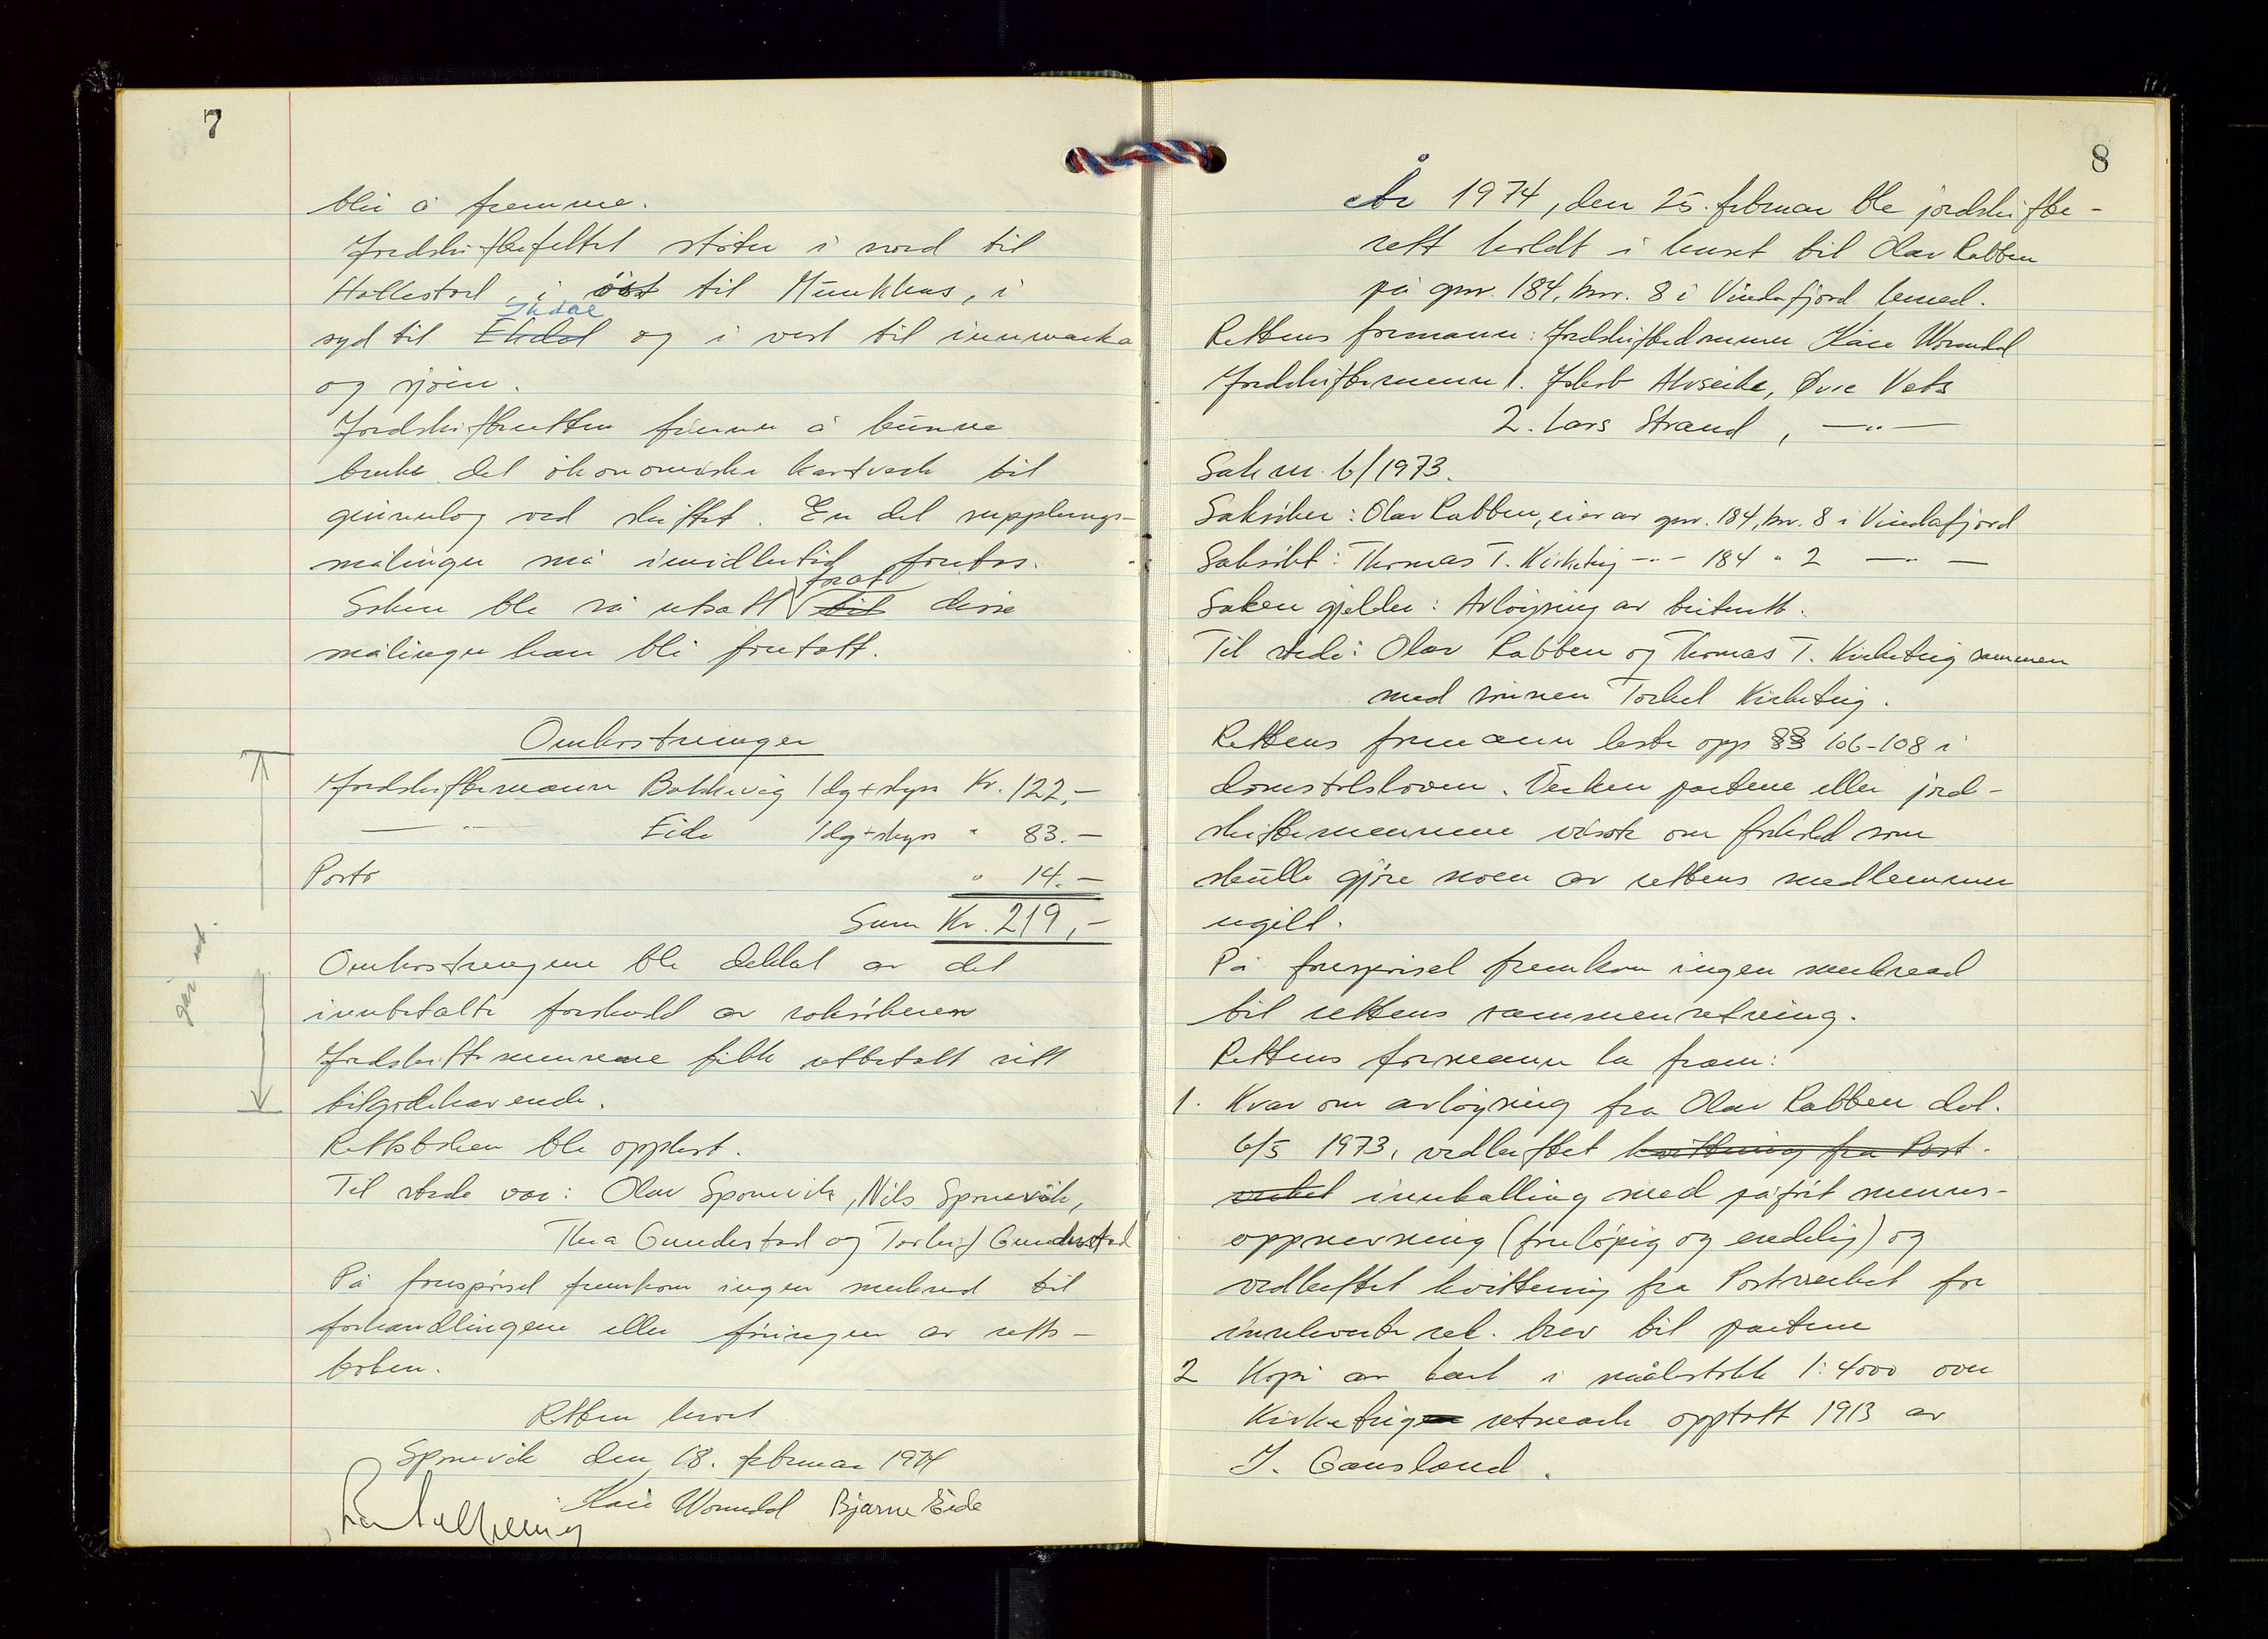 7
blir å fremme.
Jordskiftefeltet støter i nord til
Hallestad, i øst til Munkhus, i
Ikdal
syd til Ekdal og i vest til innmarka
og sjøen.
Jordskifteretten finner å kunne
bruke det økonomiske kartverk til
grunnlag ved skiftet. En del supplerings-
målinger må imidlertid foretas.
for at
Saken ble så utsatt til disse
målinger kan bli foretatt.
Omkostninger
Jordskiftemann Bakkevig 1 dg + skyss Kr. 122,-
— " — Eide 1 dg + skyss " 83.-
Porto " 14.-
Sum Kr. 219,-
Omkostningene ble dekket av det
innbetalte forskudd av saksøkeren
Jordskiftemennene fikk utbetalt sitt
tilgodehavende.
Rettsboken ble opplest.
Til stede var: Olav Sponevik, Nils Sponevik,
Thea Gundestad og Torleif Gunderstad
På forespørsel fremkom ingen merknad til
forhandlingene eller føringen av retts-
boken.
Retten hevet
Sponevik den 18. februar 1974
Kåre Womdal Bjarne Eide
8
År 1974, den 25. februar ble jordskifte-
rett holdt i huset til Olav Rabben
på gnr. 184, bnr. 8 i Vindafjord herred.
Rettens formann: Jordskiftedommer Kåre Womdal
Jordskiftemenn 1. Jakob Alvseike, Øvre Vats
2. Lars Strand, — " —
Sak nr. 6/1973.
Saksøker: Olav Rabben, eier av gnr. 184, bnr. 8 i Vindafjord
Saksøkt: Thomas T. Kirketeig — " — 184 " 2 — " —
Saken gjelder: Avløysing av beiterett.
Til stede: Olav Rabben og Thomas T. Kirketeig sammen
med sønnen Torkel Kirketeig.
Rettens formann leste opp §§ 106-108 i
domstolsloven. Verken partene eller jord-
skiftemennene visste om forhold som
skulle gjøre noen av rettens medlemmer
ugild.
På forespørsel fremkom ingen merknad
til rettens sammensetning.
Rettens formann la fram:
1. Krav om avløysing fra Olav Rabben dat.
6/5 1973, vedheftet kvittering fra Post-
verket innkalling med påført menns-
oppnevning (foreløpig og endelig) og
vedheftet kvittering fra Postverket for
innleverte rek. brev til partene
2 Kopi av kart i målestokk 1:4000 over
Kirketeig utmark opptatt 1913 av
J. Gausland.